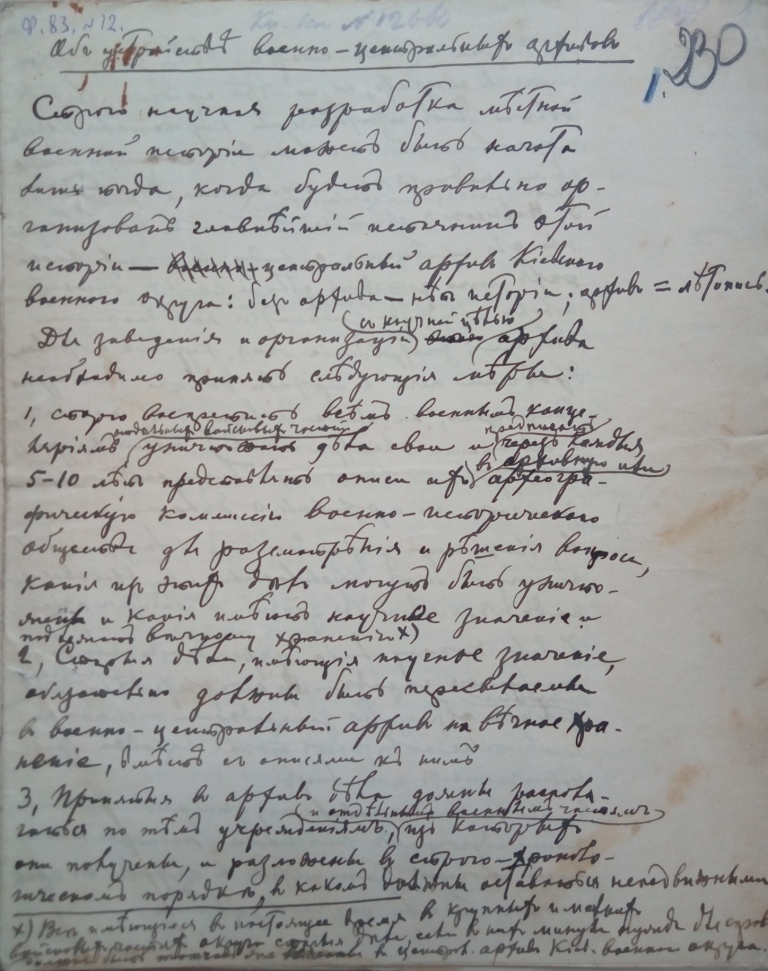 Ф. 83. №12.
№ 12660
230
1.
Объ устройствѣ военно-центральныхъ архивовъ
Строго научная разработка мѣстной
военной исторіи можетъ быть начата
лишь тогда, когда будетъ правильно ор-
ганизованъ главнѣйшій источникъ этой
исторіи — центральный архивъ Кіевскаго
военного округа: безъ архива — нѣтъ исторіи; архивъ = лѣтопись.
съ научной цѣлью
Для заведенія и организаціи архива
необходимо принять слѣдующія мѣры:
1, строго воспретить всѣмъ военнымъ канце-
ляріямъ отдѣльныхъ войсковыхъ частей предписать
уничтожать дѣла свои и черезъ каждыя
въ архивную или
5-10 лѣтъ представлять описи ихъ археогра-
фическую комиссію военно-историческаго
общества для разсмотрѣнія и рѣшенія вопроса,
какія изъ этихъ дѣлъ могутъ быть уничто-
жены и какія имѣютъ научное значеніе и
подлежатъ вѣчному храненію х)
2, Старыя дѣла, имѣющія научное значеніе,
обязательно должны быть пересылаемы
въ военно-центральный архивъ на вѣчное хра-
неніе, вмѣстѣ съ описями къ нимъ
3, Принятыя въ архивъ дѣла должны распола-
и отдѣльнымъ военнымъ частямъ
гаться по тѣмъ учрежденіямъ, изъ которыхъ
они получены, и разложены въ строго-хроноло-
гическомъ порядкѣ, въ какомъ должны оставаться неподвижными
х) Всѣ имѣющіяся въ настоящее время въ крупныхъ и мелкихъ
войсковыхъ частяхъ округа старыя дѣла, если въ нихъ минуетъ нужда для
въ центр. архивъ Кіев. военнаго округа.